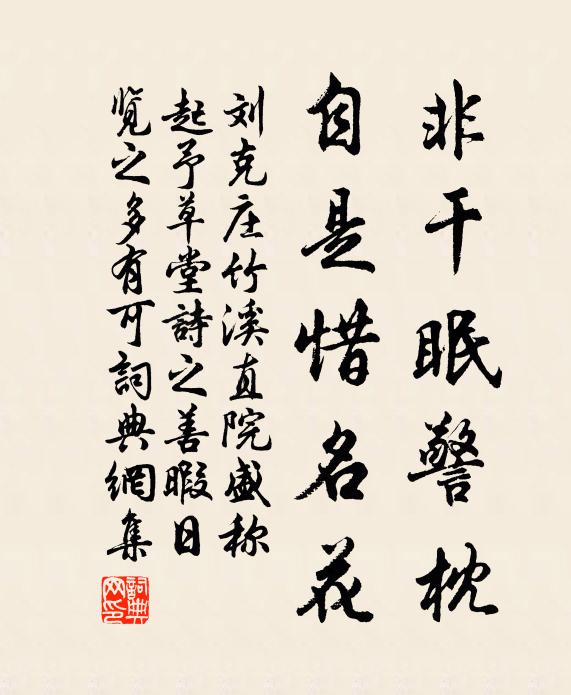 非干眠警枕
自是惜名花
刘克庄竹溪直院盛称
起予草堂詩之善暇日
览之多有可詞典網集
詞典網印